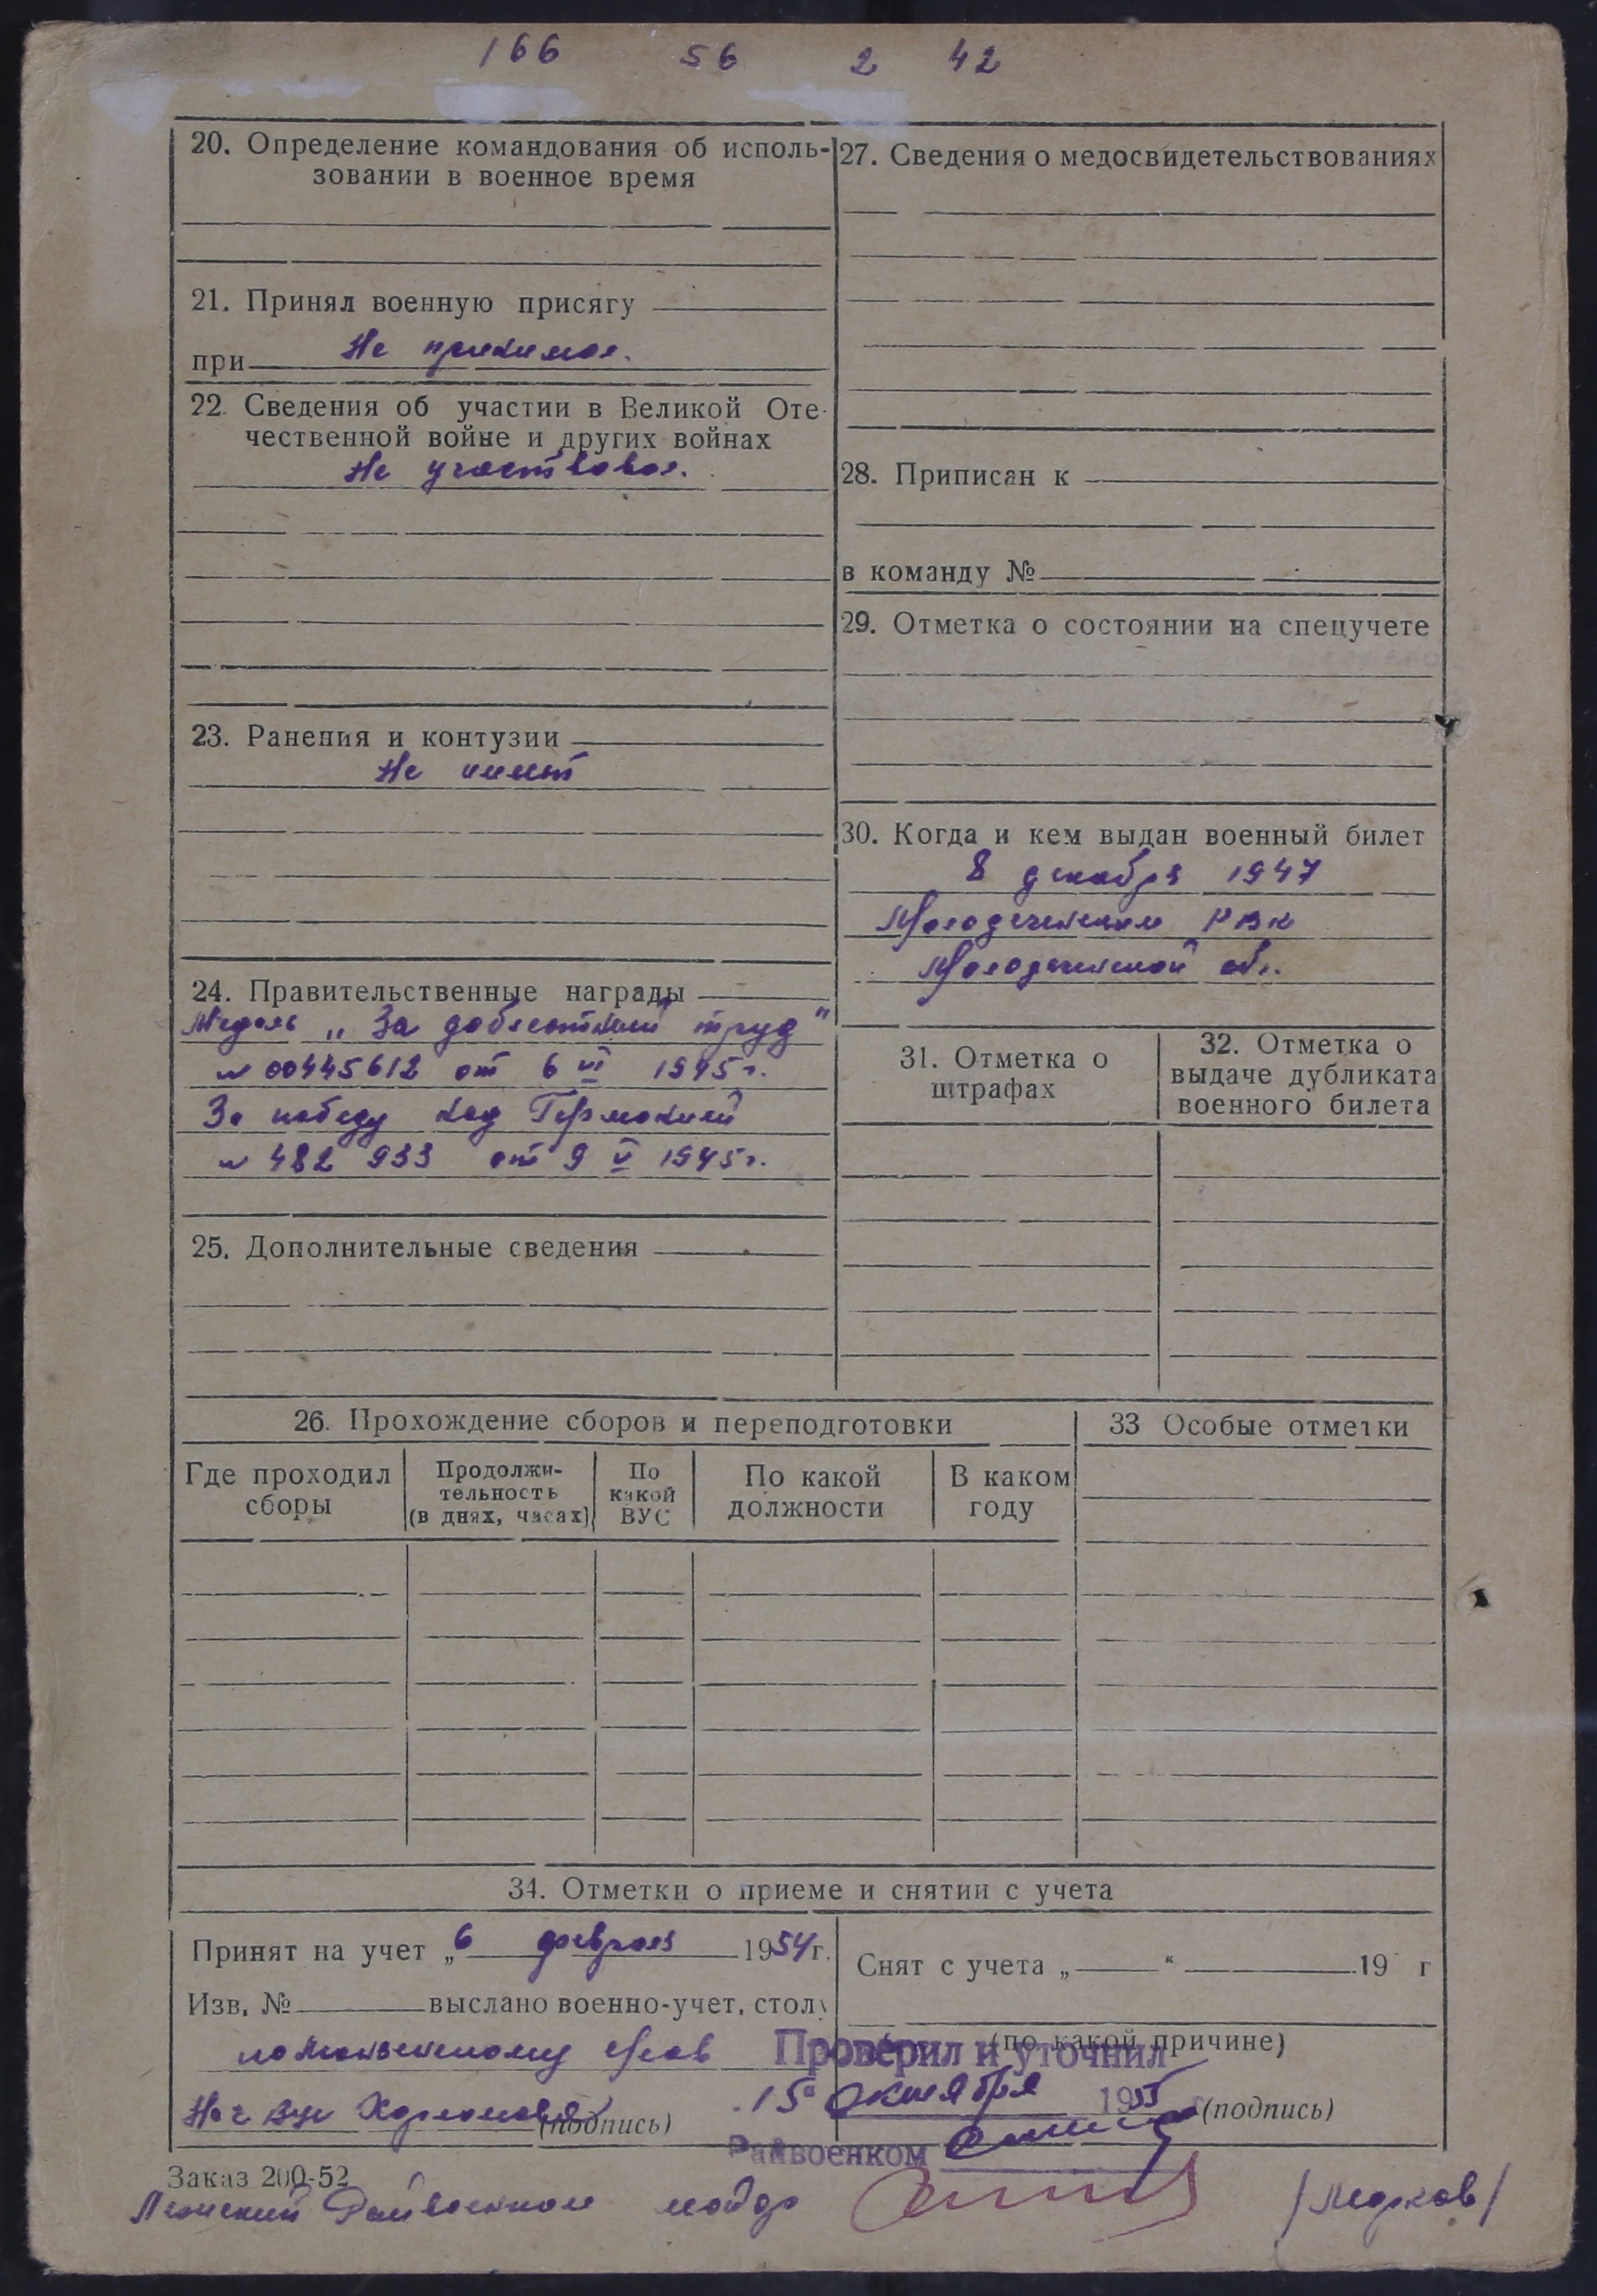 166 56 2 42
20. Определение командования об исполь-
зовании в военное время
21. Принял военную присягу
при Не принимал.
22. Сведения об участии в Великой Оте-
чественной войне и других войнах
Не участвовал.
23. Ранения и контузии
Не имеет
24. Правительственные награды
Медаль „За доблестный труд"
№ 00445612 от 6 VI 1945 г.
За победу над Германией
№ 482933 от 9 V 1945 г.
25. Дополнительные сведения
27. Сведения о медосвидетельствованиях
28. Приписан к
в команду №
29. Отметка о состоянии на спецучете
30. Когда и кем выдан военный билет
8 декабря 1947
Молодеченским РВК
Молодечненской обл.
31. Отметка о
штрафах
32. Отметка о
выдаче дубликата
военного билета
26. Прохождение сборов и переподготовки
Где проходил
сборы
Продолжи-
тельность
(в днях, часах)
По
какой
ВУС
По какой
должности
В каком
году
33 Особые отметки
34. Отметки о приеме и снятии с учета
Принят на учет „6 февраля 1954 г.
Изв. № выслано военно-учет. стол
Нач ВУС
(подпись)
Снят с учета „ " 19 г
(по какой причине)
(подпись)
Проверил и уточнил
15 октября 1955
Райвоенком
Заказ 200-52
Райвоенком майор /Медков/